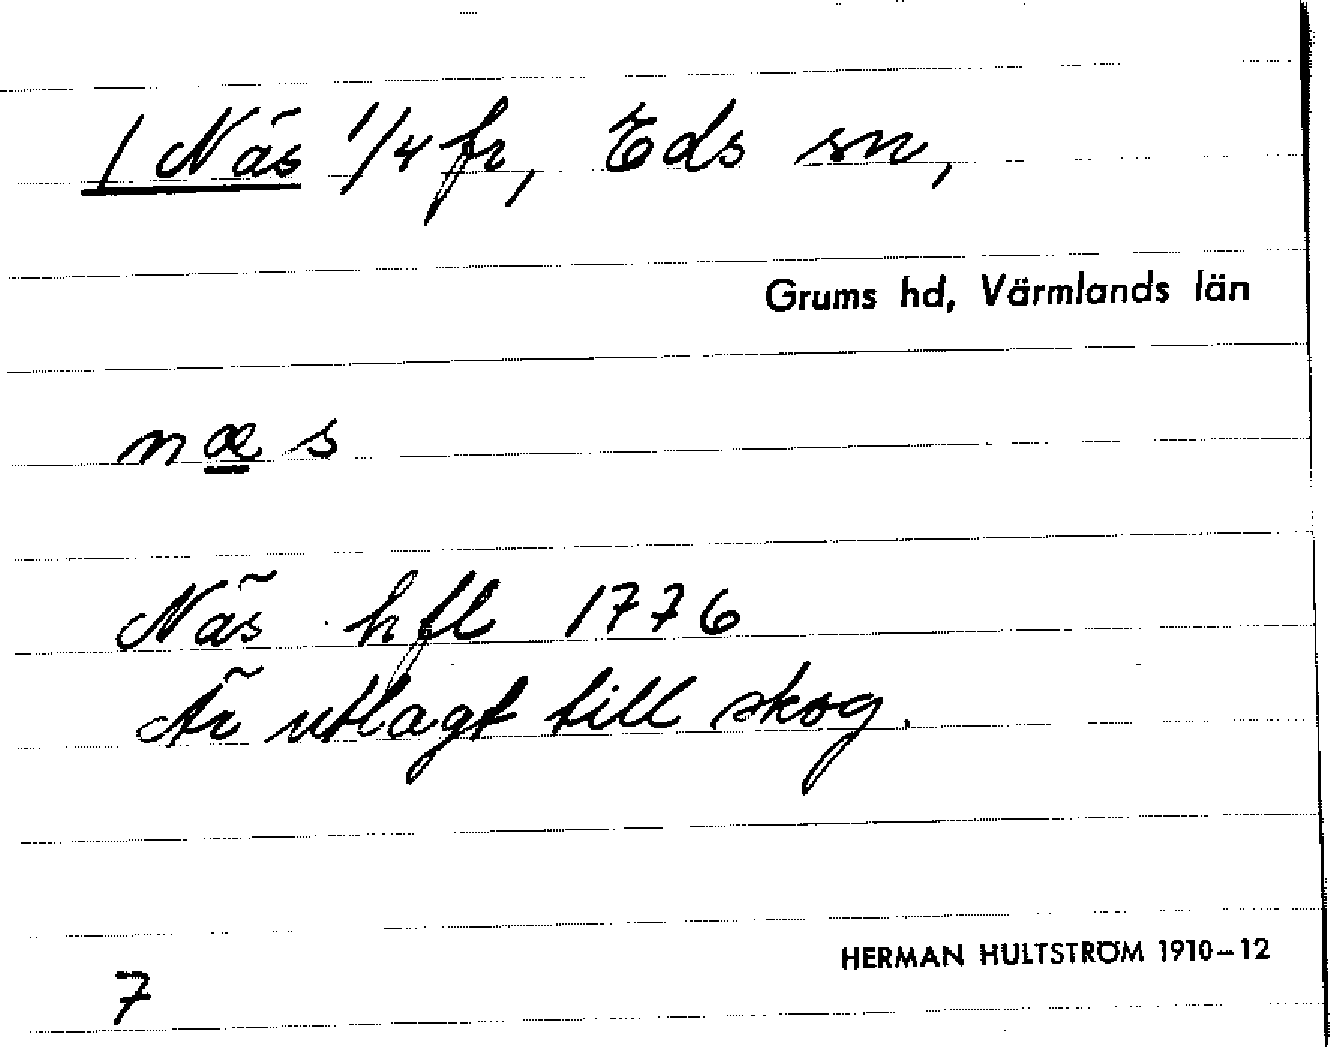 1 Näs 1/4 fr, Eds sn,
Grums hd, Värmlands län
næs
Näs hfl 1776
Är utlagt till skog.
HERMAN HULTSTRÖM 1910-12
7